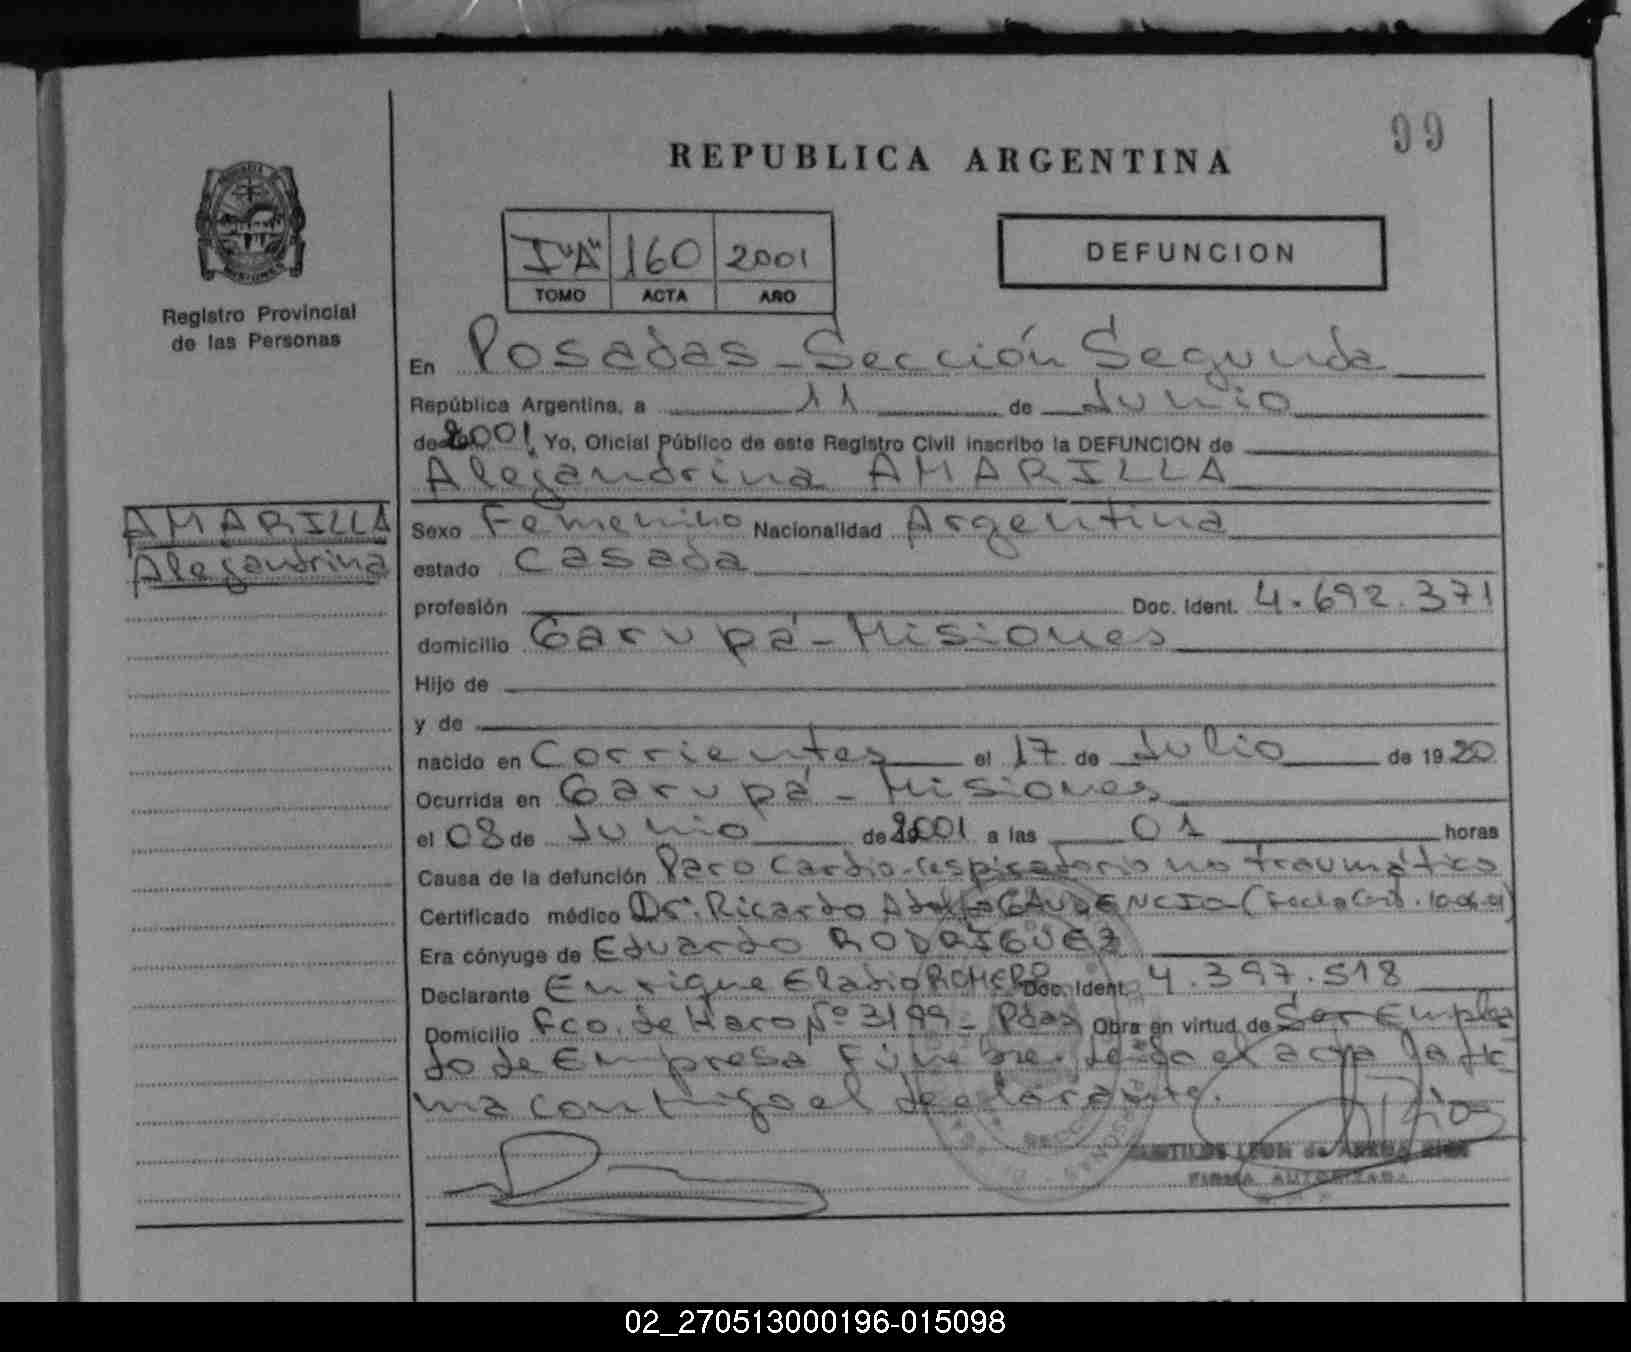 99
REPUBLICA ARGENTINA
I "A" 160 2001
TOMO ACTA AÑO
DEFUNCION
Registro Provincial
de las Personas
En Posadas - Sección Segunda
República Argentina, a 11 de Junio
de 2001, Yo, Oficial Público de este Registro Civil inscribo la DEFUNCION de
Alejandrina AMARILLA
AMARILLA
Alejandrina
Sexo Femenino Nacionalidad Argentina
estado Casada
profesión Doc. Ident. 4.692.371
domicilio Garupá - Misiones
Hijo de
y de
nacido en Corrientes el 17 de Julio de 1920
Ocurrida en Garupá - Misiones
el 08 de Junio de 2001 a las 01 horas
Causa de la defunción Paro Cardio-respiratorio no traumático
Certificado médico Dr. Ricardo Adolfo GAUDENCIO (Fecha Cert. 10-06-01)
Era cónyuge de Eduardo RODRIGUEZ
Declarante Enrique Eladio ROMERO Doc. Ident. 4.397.518
Domicilio Fco. de Haro Nº 3199 - Pdas Obra en virtud de Ser Emplea
do de Empresa Fúnebre. Leída el acta la fir
ma conmigo el declarante.
SECCION
LEON de
FIRMA AUTORIZADA
02_270513000196-015098